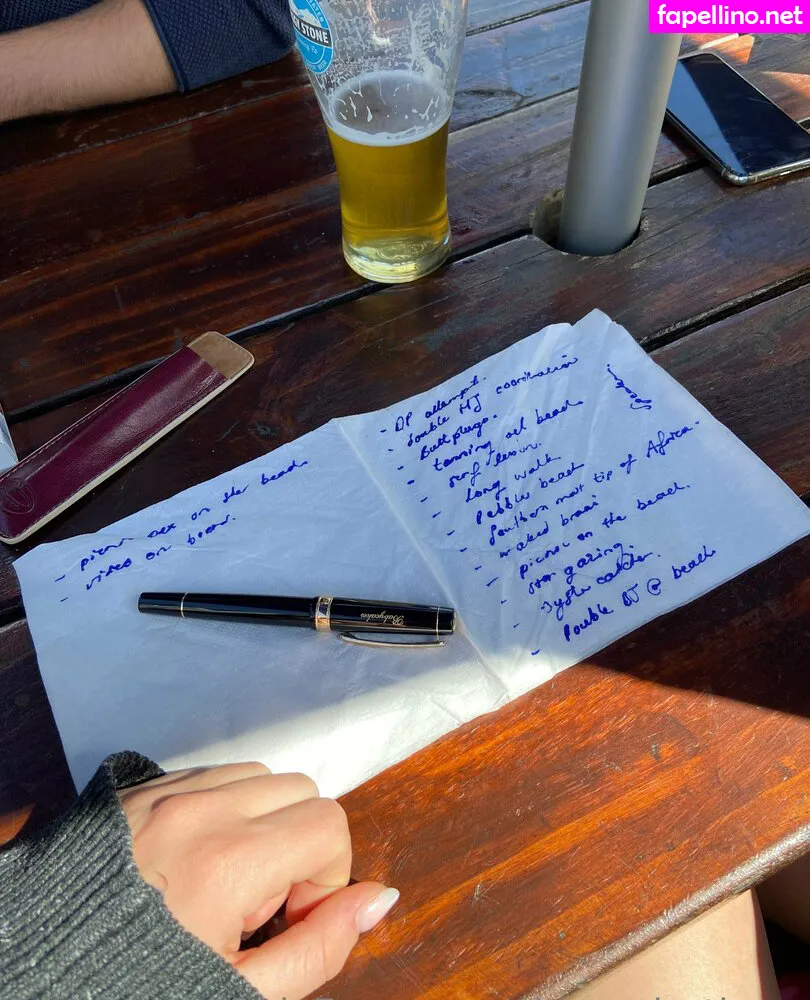 fapellino.net
STONE
- picnic sex on the beach
- video on beach.
- DP attempt.
- double HJ coordination
- Buttplugs.
- tanning at beach
- surf lesson.
- Long walk
- Pebble beach
- Southern most tip of Africa.
- naked braai
- picnic on the beach.
- star gazing.
- oyster catcher.
- Double BJ @ beach
Babycakes